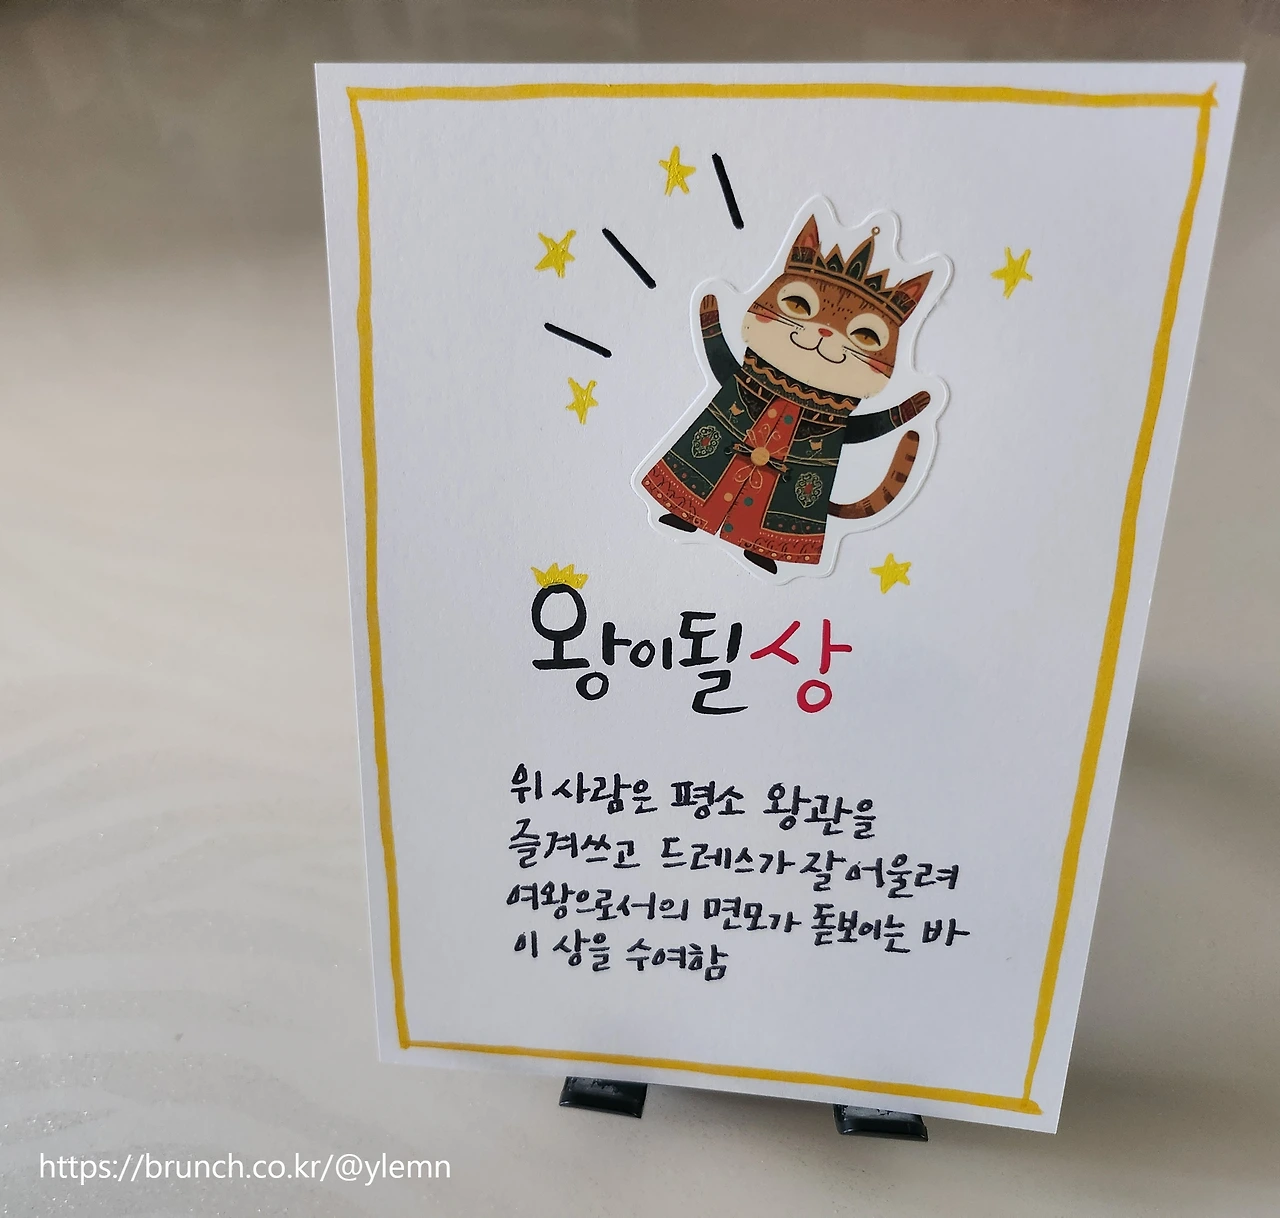 왕이될상
위 사람은 평소 왕관을
즐겨쓰고 드레스가 잘 어울려
여왕으로서의 면모가 돋보이는 바
이 상을 수여함
https://brunch.co.kr/@ylemn